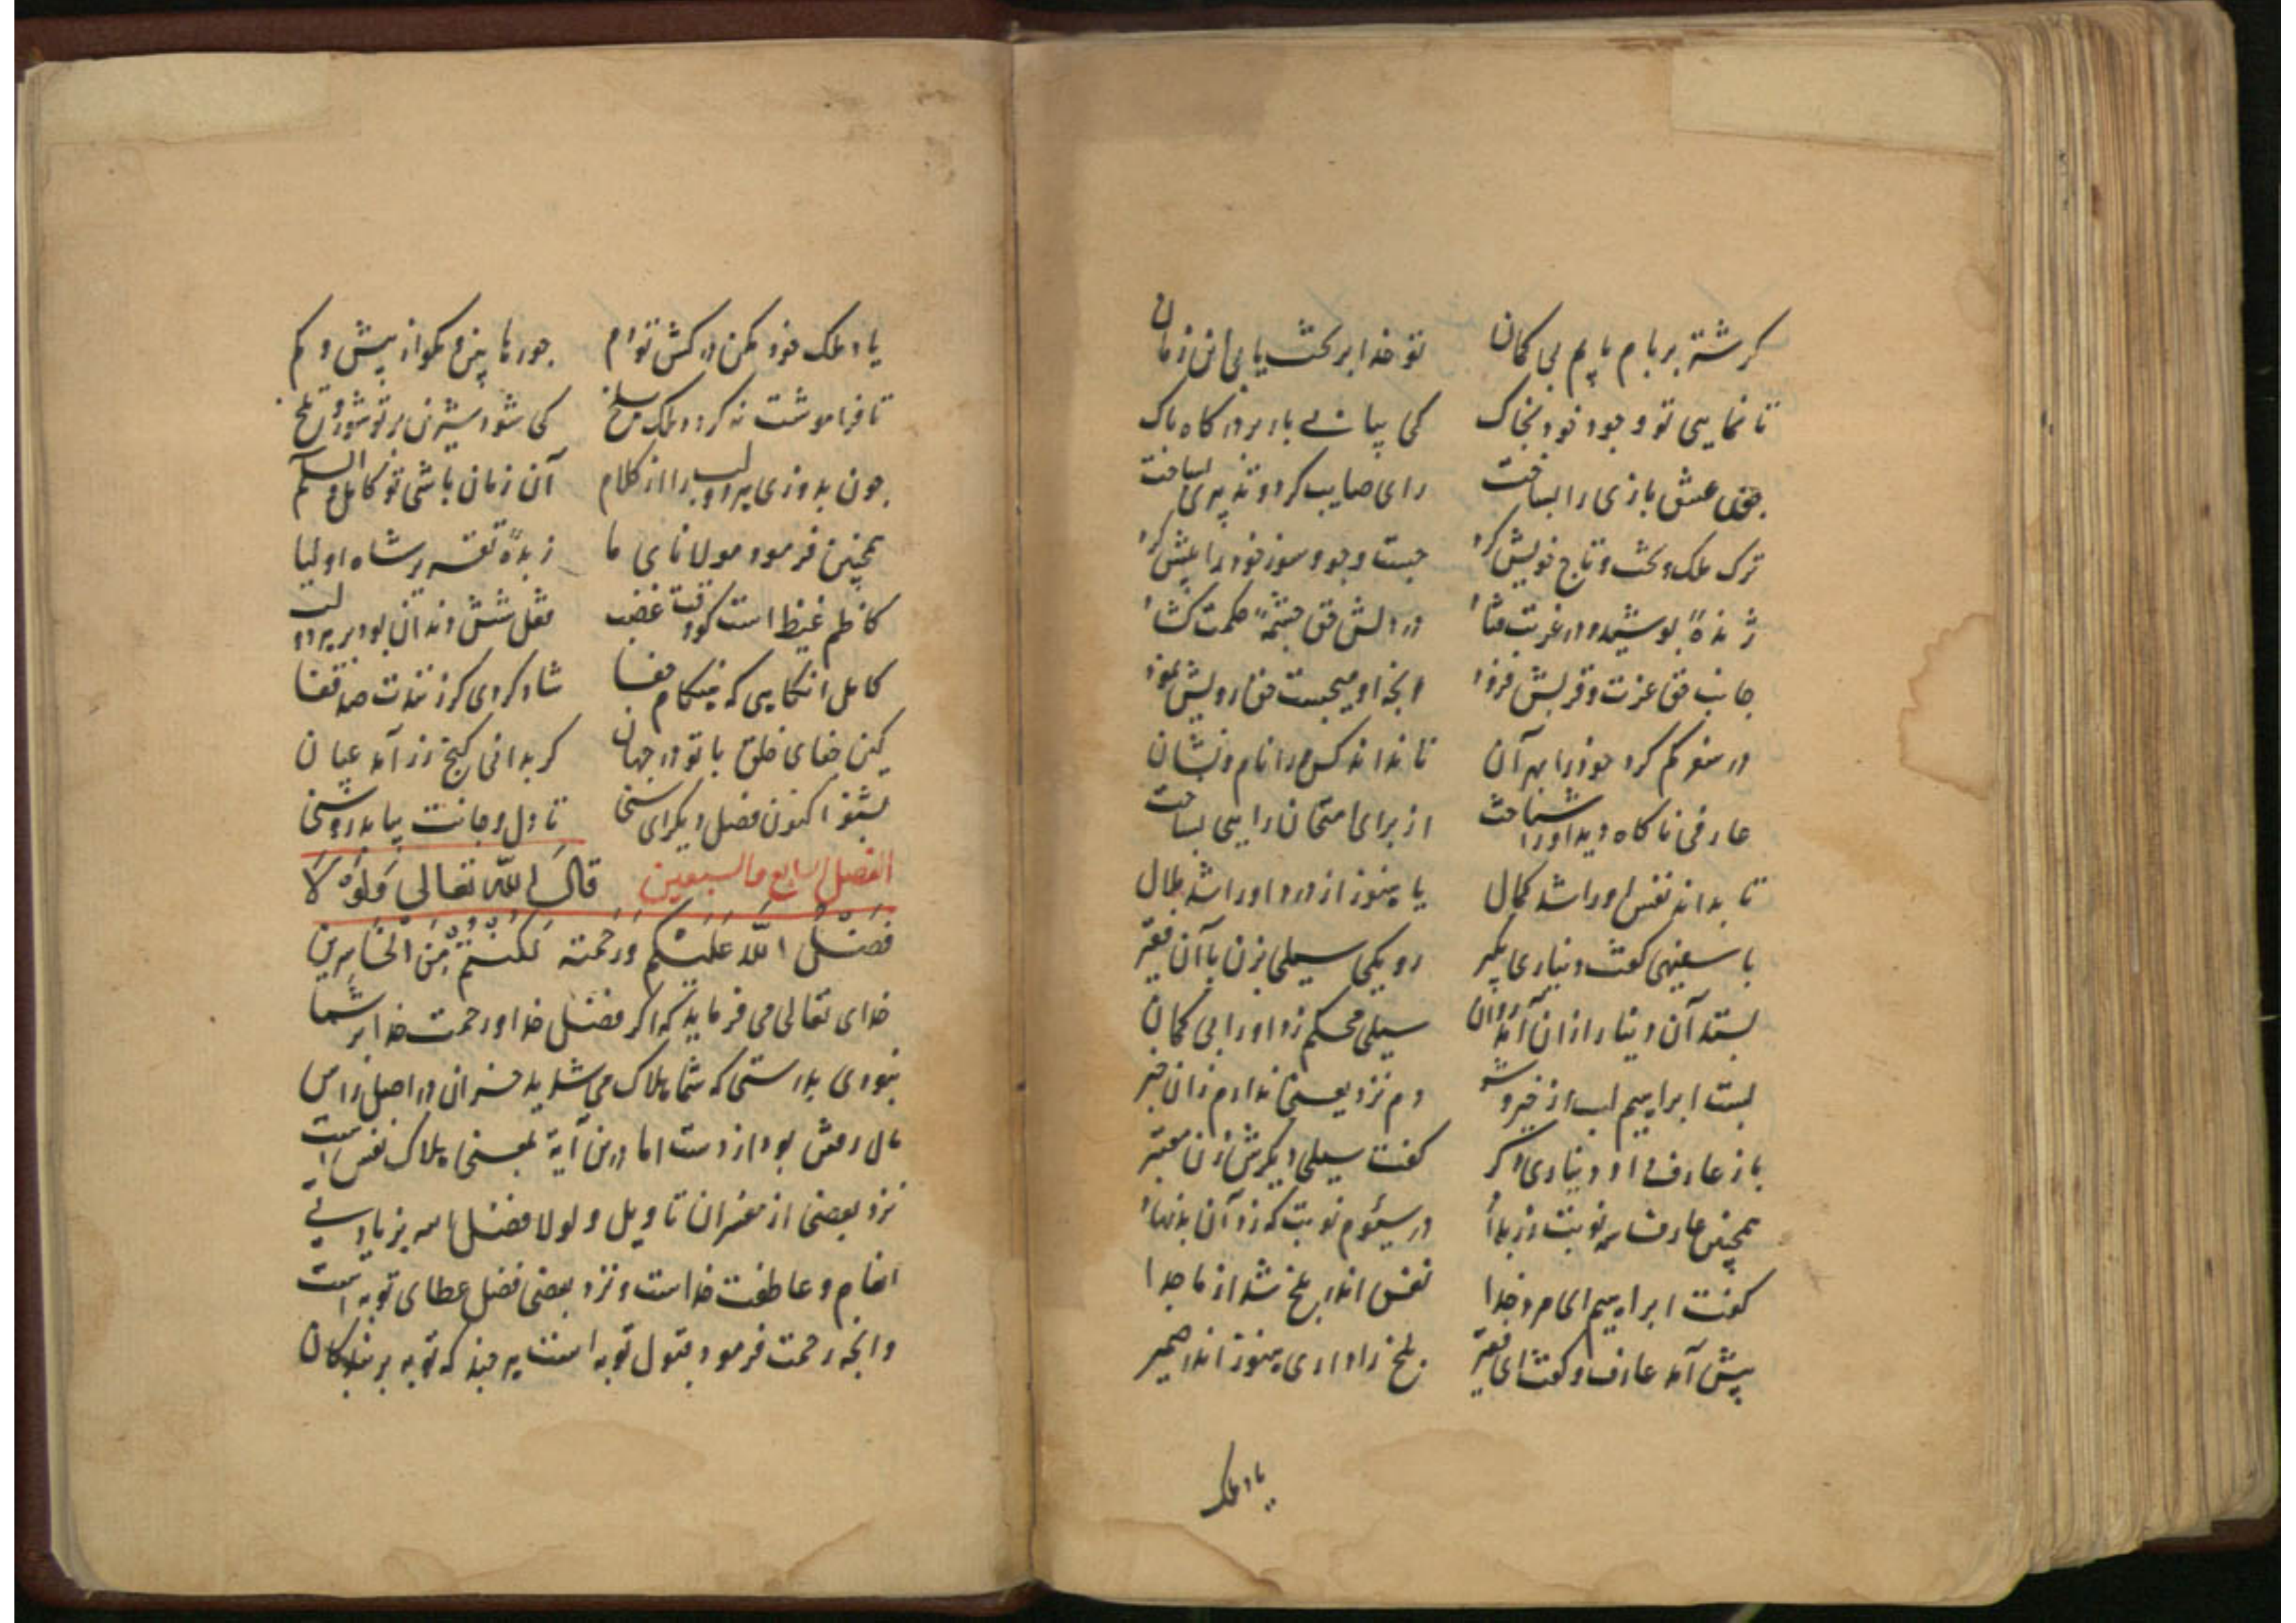 کر شتر بر بام ناید بی کمان تو خدا بر تخت یابی این زمان
تا نمایی تو وجود خود بخاک کی بیابی بار بر درگاه پاک
چون عشق بازی را بساخت رای صایب کرد و تدبیری بساخت
ترک ملک و تخت و تاج خویش کرد جست وجو و سوز خود را بیش کرد
ژنده پوشید و در غربت فتاد در دلش حق چشمهٔ حکمت کشاد
جانب حق عزت و قربش فزود انچه او میجست حق رویش نمود
در سفر کم کرد خود را بهر آن تا نداند کس ورا نام و نشان
عارفی ناکاه دید اورا شناخت از برای امتحان رایی بساخت
تا بداند نفس اورا شد کمال یا هنوز از درد اورا شد ملال
با سفیهی گفت دیناری بگیر رو یکی سیلی بزن با آن فقیر
بستد آن دینار ازان آمد روان سیلی محکم زد اورا بی کمان
بست ابراهیم لب از خیر و شر دم نزد یعنی ندارم زان خبر
باز عارف داد دیناری دکر گفت سیلی دیکرش زن معتبر
همچنین عارف سه نوبت زر بداد در سیوم نوبت که زد آن بدنهاد
گفت ابراهیم ای مرد خدا نفس اندر بلخ شد از ما جدا
پیش آمد عارف و گفت ای فقیر بلخ را داری هنوز اندر ضمیر
یاد ملک
یاد ملک خود مکن درکش تو دم جور ما بین و مکو از بیش و کم
تا فراموشت نکردد ملک بلخ کی شود شیرین بر تو شور و تلخ
چون بدوزی هر دو لب را از کلام آن زمان باشی تو کامل والسلام
همچنین فرمود مولانای ما زبدهٔ تقریر شاه اولیا
کاظم غیظ است کو وقت غضب قفل شش دندان بود بر هر دو لب
کامل انکاهی که هنکام جفا شاد کردی کر زنندت صد قفا
کین جفای خلق با تو در جهان کر بدانی کنج زر آمد عیان
بشنو اکنون فصل دیکر ای سخی تا دل و جانت بیابد روشنی
الفصل الرابع والسبعین قال الله تعالی فلولا
فضل الله علیکم ورحمته لکنتم من الخاسرین
خدای تعالی می فرماید که اکر فضل خدا و رحمت خدا بر شما
نبودی بدرستی که شما هلاک می شدید خسران در اصل راس
مال رفتن بود از دست اما درین آیة بمعنی هلاک نفس است
نزد بعضی از مفسران تاویل و لولا فضل الله بزیادتی
انعام و عاطفت خداست و نزد بعضی فضل عطای توبه است
وانچه رحمت فرمود قبول توبه است هر چند که توبه بر بندکان